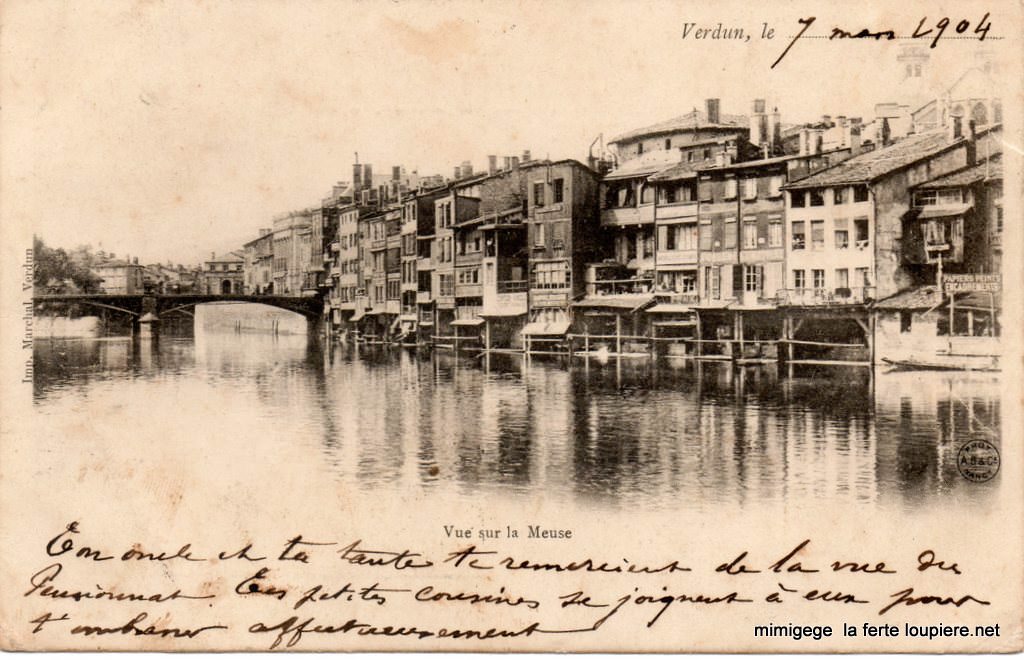 Verdun, le 7 mars 1904
Imp. Marchal, Verdun
PAPIERS PEINTS
ENCADREMENTS
PHOT
A.B & Cie
NANCY
Vue sur la Meuse
Ton oncle et ta tante te remercient de la vue du
Pensionnat. Tes petites cousines se joignent à eux pour
t'embrasser affectueusement
mimigege la ferte loupiere.net